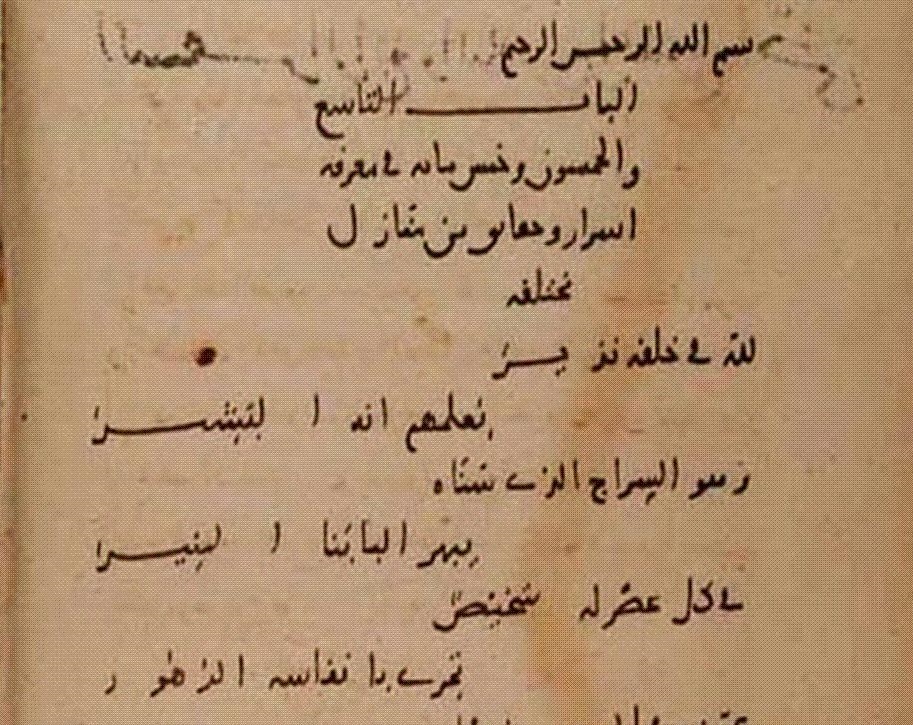 بسم الله الرحمن الرحيم
الباب التاسع
والخمسون وخمس مائة في معرفة
اسرار وحقايق من منازل
مختلفة
لله في خلقه نذير
يعلمهم انه البشير
وهو السراج الذي سناه
يبهر البابنا المنير
في كل عصر له شخيص
تجري بانفاسه الدهور